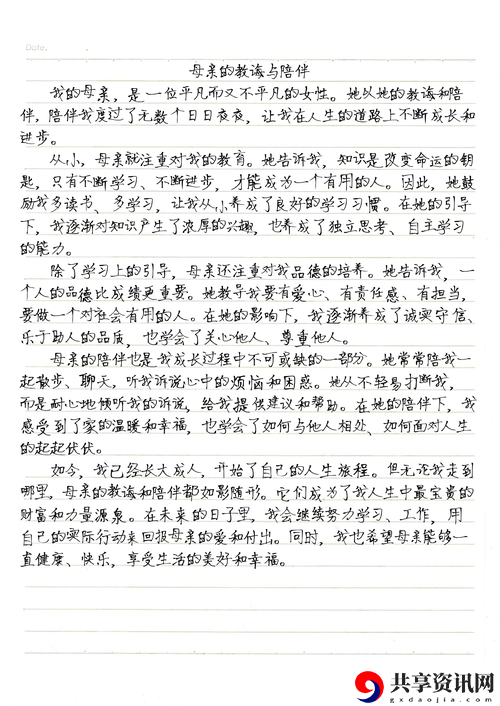 Date.
母亲的教诲与陪伴
我的母亲，是一位平凡而又不平凡的女性。她以她的教诲和陪
伴，陪伴我度过了无数个日日夜夜，让我在人生的道路上不断成长和
进步。
从小，母亲就注重对我的教育。她告诉我，知识是改变命运的钥
匙，只有不断学习、不断进步，才能成为一个有用的人。因此，她鼓
励我多读书、多学习，让我从小养成了良好的学习习惯。在她的引导
下，我逐渐对知识产生了浓厚的兴趣，也养成了独立思考、自主学习
的能力。
除了学习上的引导，母亲还注重对我品德的培养。她告诉我，一
个人的品德比成绩更重要。她教导我要有爱心、有责任感、有担当，
要做一个对社会有用的人。在她的影响下，我逐渐养成了诚实守信、
乐于助人的品质，也学会了关心他人、尊重他人。
母亲的陪伴也是我成长过程中不可或缺的一部分。她常常陪我一
起散步、聊天，听我诉说心中的烦恼和困惑。她从不轻易打断我，
而是耐心地倾听我的诉说，给我提供建议和帮助。在她的陪伴下，我
感受到了家的温暖和幸福，也学会了如何与他人相处、如何面对人生
的起起伏伏。
如今，我已经长大成人，开始了自己的人生旅程。但无论我走到
哪里，母亲的教诲和陪伴都如影随形。它们成为了我人生中最宝贵的
财富和力量源泉。在未来的日子里，我会继续努力学习、工作，用
自己的实际行动来回报母亲的爱和付出。同时，我也希望母亲能够一
直健康、快乐，享受生活的美好和幸福。
共享资讯网
gxdaojia.com